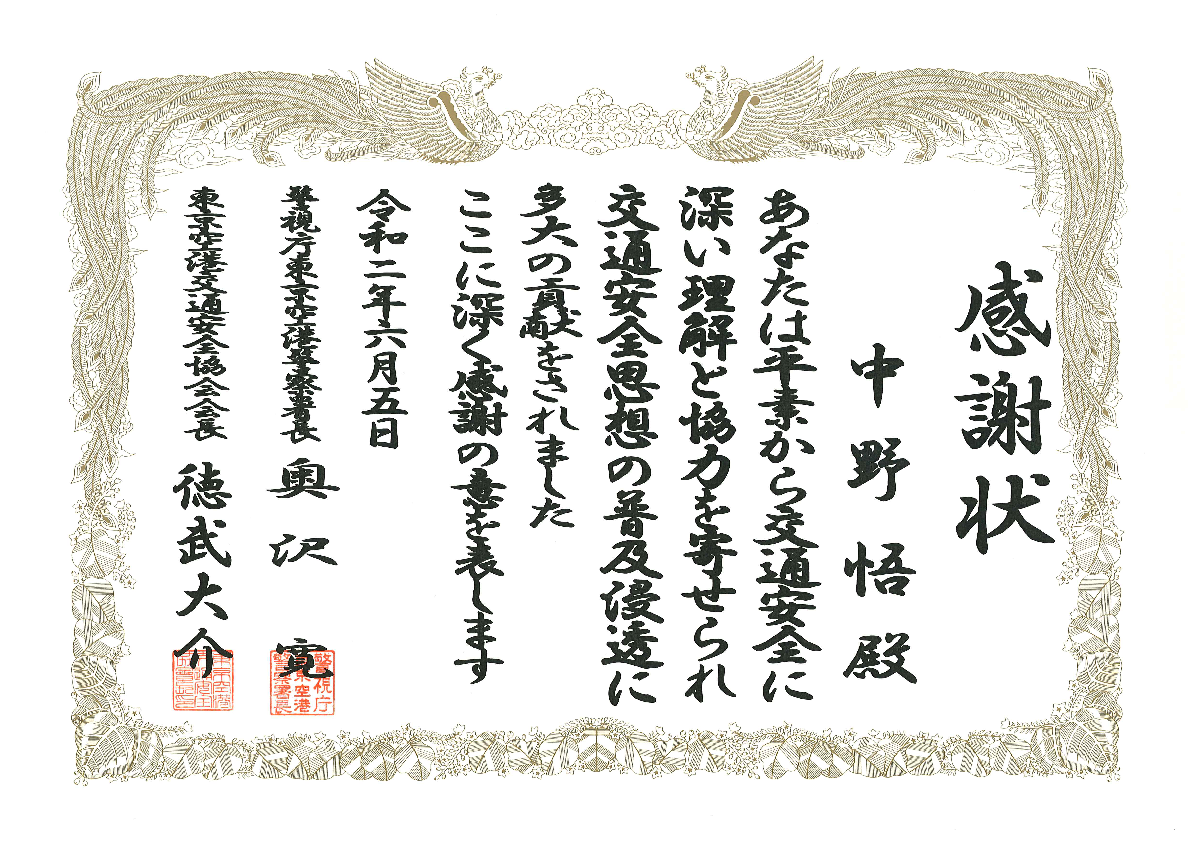 感謝状
中野悟殿
あなたは平素から交通安全に
深い理解と協力を寄せられ
交通安全思想の普及浸透に
多大の貢献をされました
ここに深く感謝の意を表します
令和二年六月五日
警視庁東京空港警察署長 奥沢寛
東京空港交通安全協会会長 徳武大介
警視庁
東京空港
警察署長